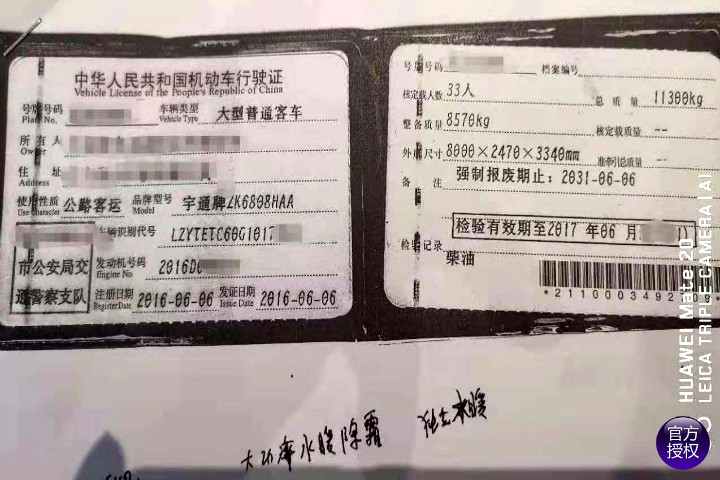 中华人民共和国机动车行驶证
Vehicle License of the People's Republic of China
号牌号码
Plate No.
车辆类型
Vehicle Type
大型普通客车
所有人
Owner
住址
Address
使用性质
Use Character
公路客运
品牌型号
Model
宇通牌ZK6808HAA
车辆识别代号
LZYTETC60G1017
市公安局交
通警察支队
发动机号码
Engine No.
2016D0
注册日期
Register Date
2016-06-06
发证日期
Issue Date
2016-06-06
号牌号码
档案编号
核定载人数
33人
总质量
11300kg
整备质量
8570kg
核定载质量
--
外廓尺寸
8000×2470×3340mm
准牵引总质量
--
备注
强制报废期止：2031-06-06
检验有效期至2017年06月
检验记录
柴油
*2110003492
大功率水暖除霜
独立水暖
HUAWEI Mate 20
LEICA TRIPLE CAMERA | AI
官方
授权